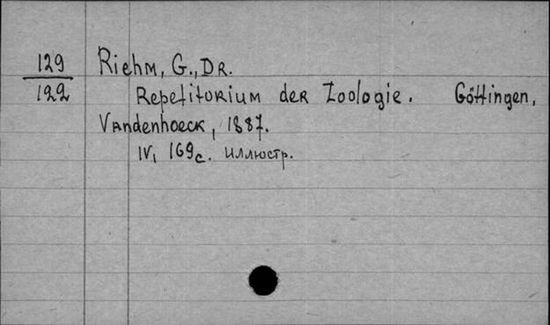 129
122
Riehm, G., Dr.
Repetitorium der Zoologie. Göttingen,
Vandenhoeck, 1887.
IV, 169 с. иллюстр.